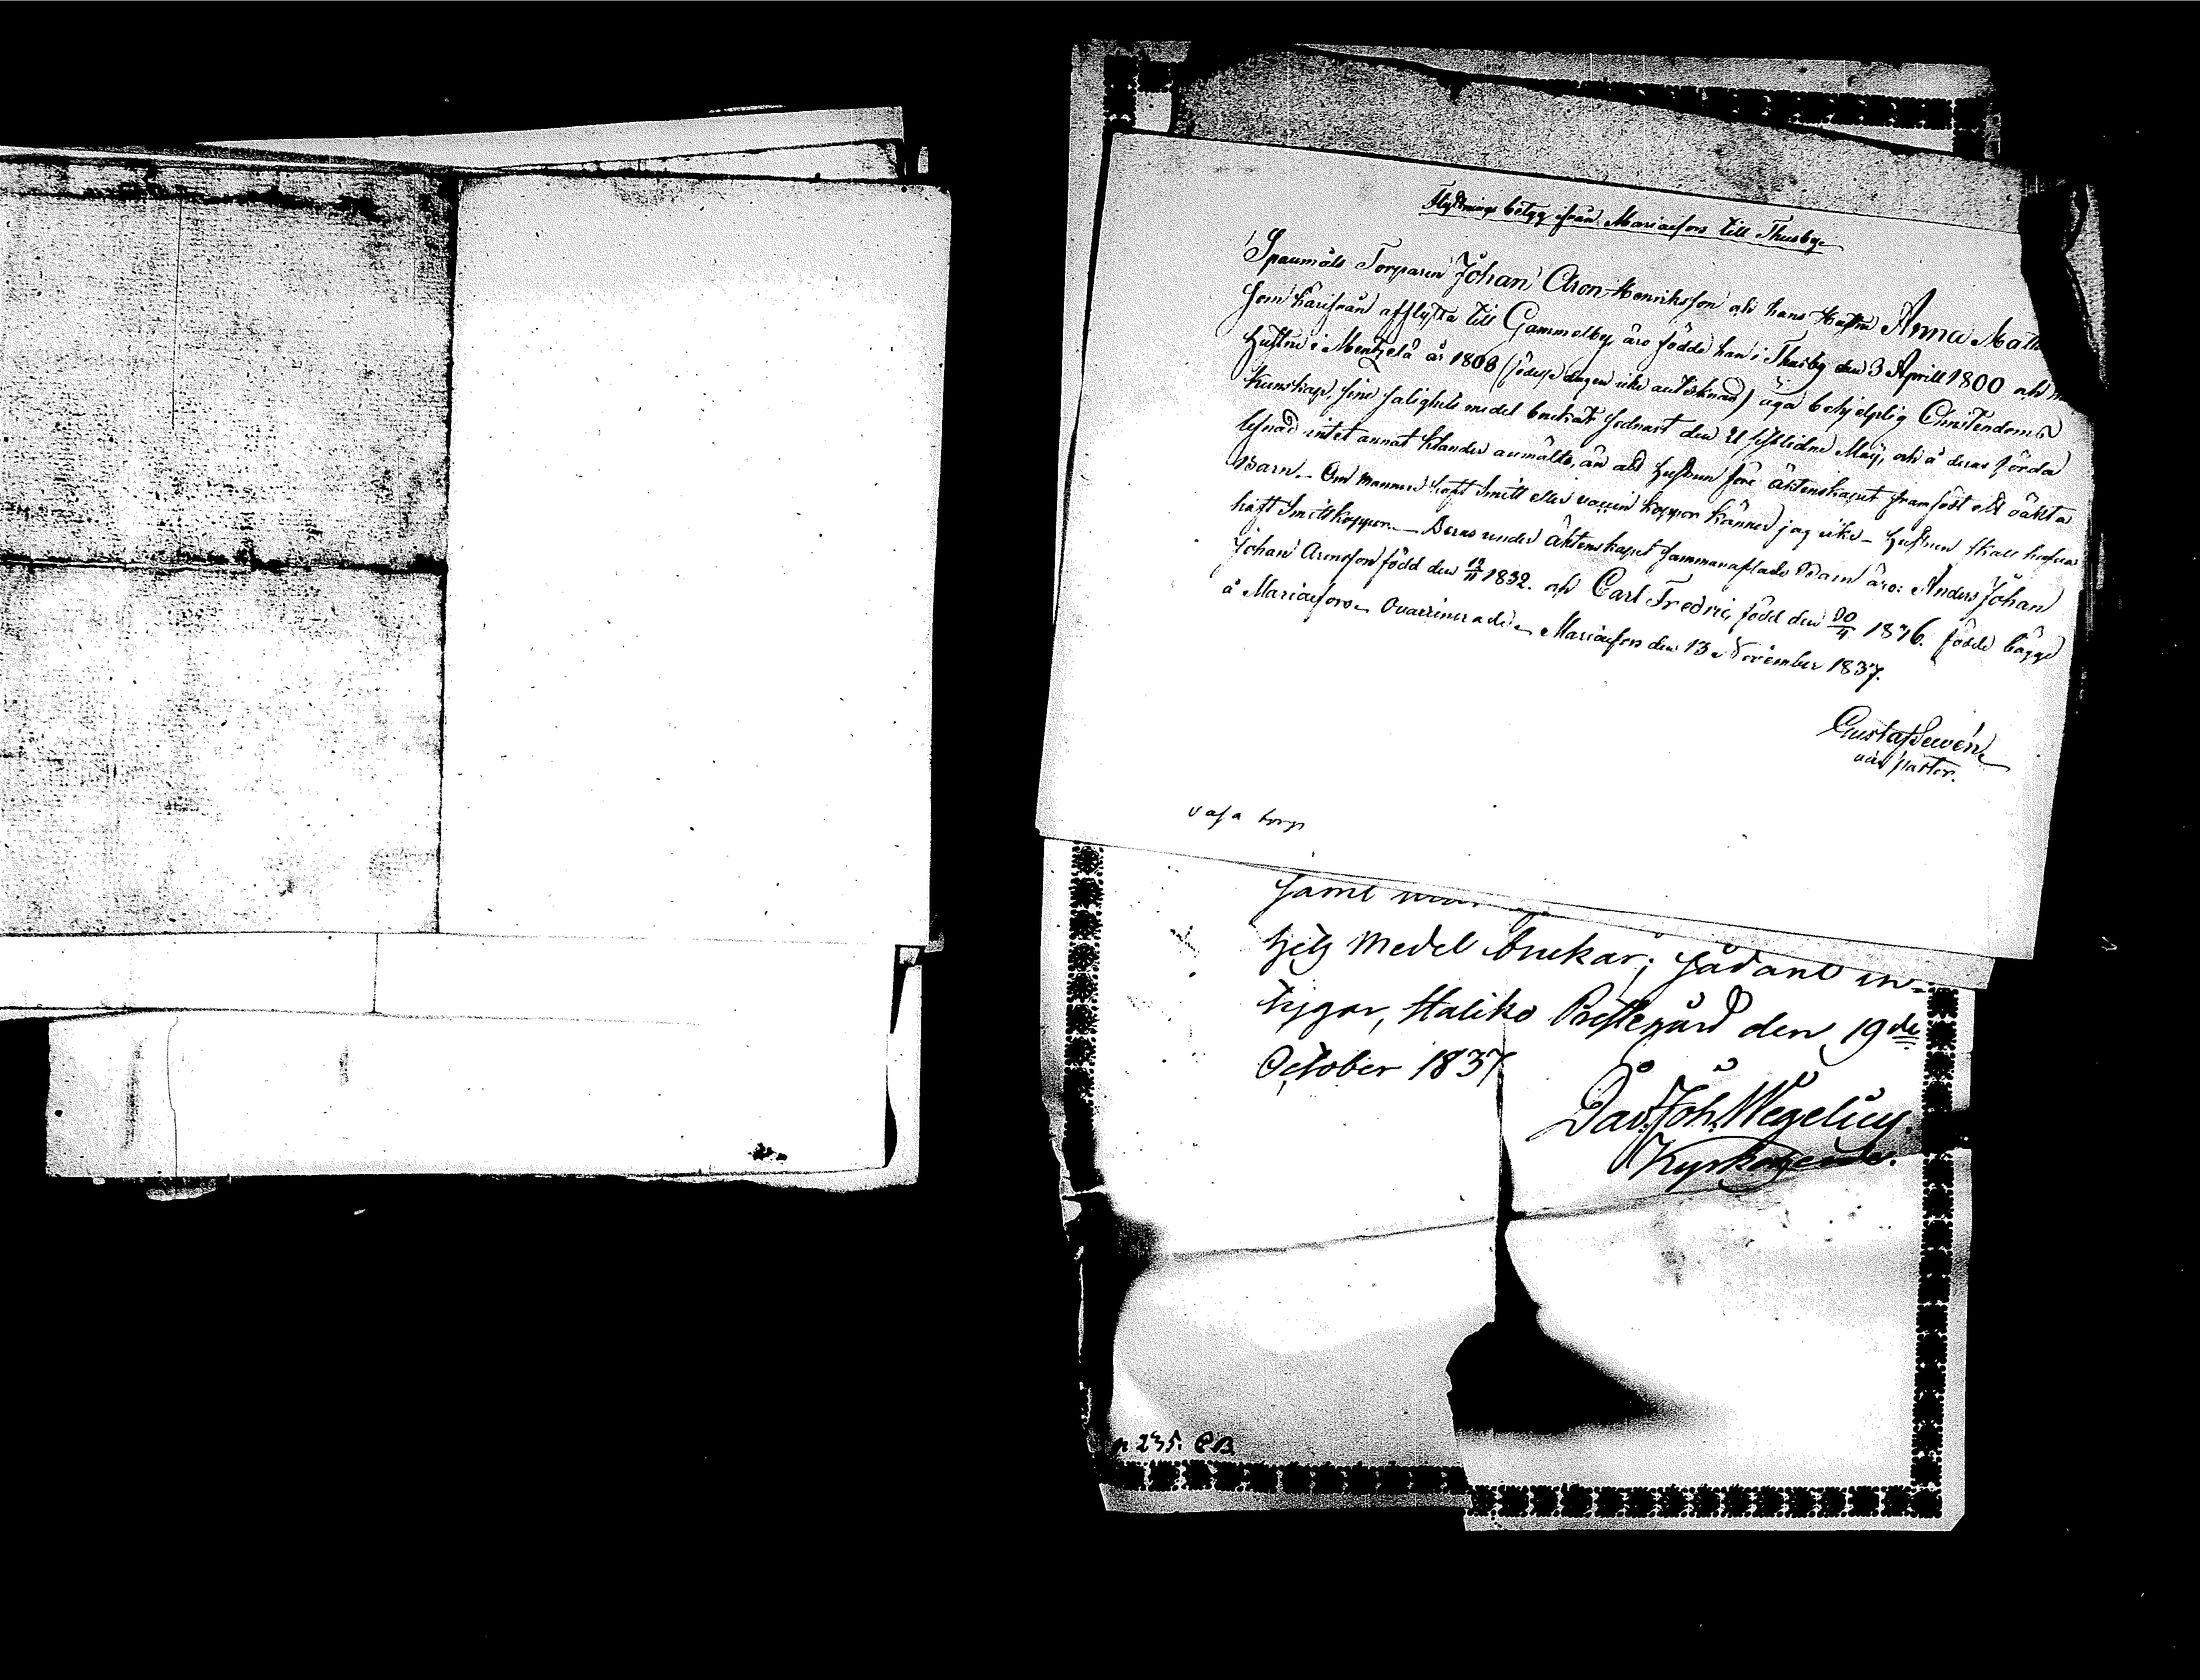 Flyttnings betyg ifrån Mariæfors till Thusby
Spanmåls Torparen Johan Aron Henriksson och hans Hustru Anna Math
som härifrån afflytta till Gammelby, äro födde han i Thusby den 3 Aprill 1800 och
Hustrun i Mentzelä år 1808 (födelse dagen icke antecknad) äga behjelplig Christendoms
kunskap, sine salighets medel brukat sednast den 21 sistledne Maij, och å deras förda
lefnad intet annat klander anmälts, än att Hustrun före äktenskapet framfödt ett oäkta
Barn. Om mannen haft Smitt eller vaccin koppor känner jag icke - Hustrun skall hafva
haft Smittkoppor. Deras under äktenskapet sammanaflade Barn äro: Anders Johan
Johan Aronsson född den 12/11 1832. och Carl Fredric, född den 20/4 1836. födde bägge
å Mariæfors. Mariæfors den 13 November 1837.
Gustaf Lewén
vice pastor.
vasa torp
samt
Medel brukar; sådant in-
tygar, Haliko Prestegård den 19de
October 1837
Dav. Joh. Wegelius.
Kyrkoherde.
p 235. CB